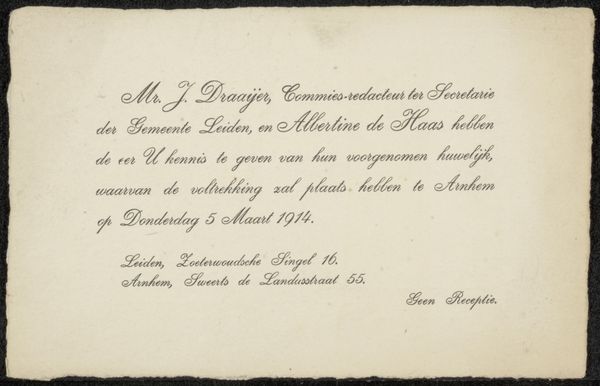 Mr. J. Draaijer, Commies-redacteur ter Secretarie
der Gemeente Leiden, en Albertine de Haas hebben
de eer U kennis te geven van hun voorgenomen huwelijk,
waarvan de voltrekking zal plaats hebben te Arnhem
op Donderdag 5 Maart 1914.
Leiden, Zoeterwoudsche Singel 16.
Arnhem, Sweerts de Landasstraat 55.
Geen Receptie.